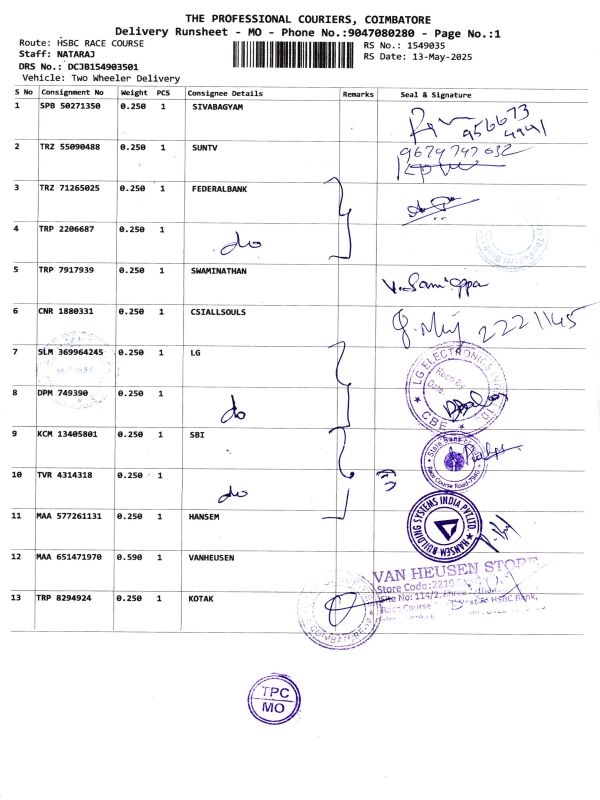 THE PROFESSIONAL COURIERS, COIMBATORE
Delivery Runsheet - MO - Phone No.:9047080280 - Page No.:1
Route: HSBC RACE COURSE
RS No.: 1549035
Staff: NATARAJ
RS Date: 13-May-2025
DRS No.: DCJB154903501
Vehicle: Two Wheeler Delivery
S No Consignment No Weight PCS Consignee Details Remarks Seal & Signature
1 SPB 50271350 0.250 1 SIVABAGYAM
956673
4941
2 TRZ 55090488 0.250 1 SUNTV
9679747032
3 TRZ 71265025 0.250 1 FEDERALBANK
4 TRP 2206687 0.250 1 do
5 TRP 7917939 0.250 1 SWAMINATHAN
6 CNR 1880331 0.250 1 CSIALLSOULS
2221145
7 SLM 369964245 0.250 1 LG
LG ELECTRONICS
Date
CBE
8 DPM 749390 0.250 1 do
9 KCM 13405801 0.250 1 SBI
State Bank of
Race Course Road
10 TVR 4314318 0.250 1 do
11 MAA 577261131 0.250 1 HANSEM
HANSEM BUILDING SYSTEMS INDIA PVT LTD
12 MAA 651471970 0.590 1 VANHEUSEN
VAN HEUSEN STORE
Store Code:2210
Site No: 114/2,
HSBC Bank,
Race Course
13 TRP 8294924 0.250 1 KOTAK
COIMBATORE
TPC
MO